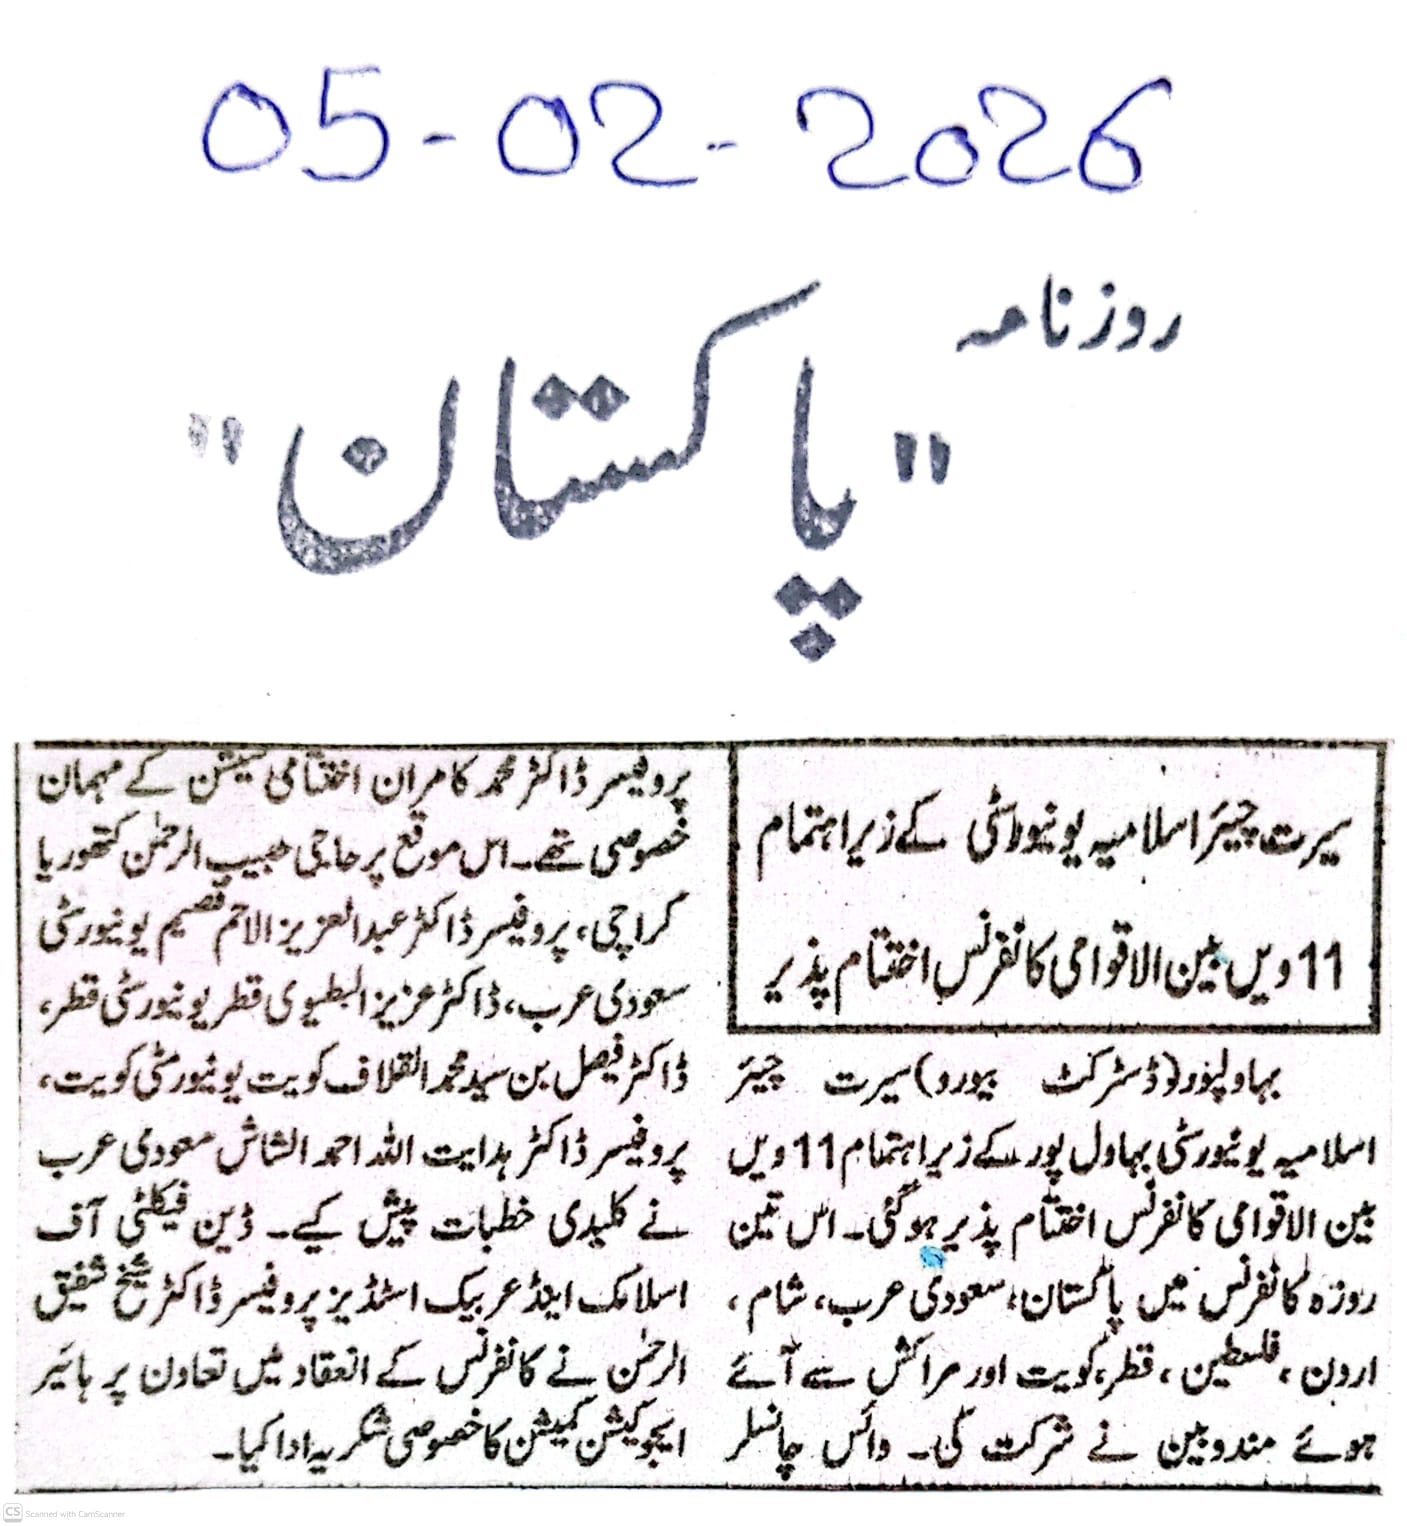 05-02-2026
روزنامہ
"پاکستان"
سیرت چیئر اسلامیہ یونیورسٹی کے زیر اہتمام
11 ویں بین الاقوامی کانفرنس اختتام پذیر
بہاولپور(ڈسٹرکٹ بیورو) سیرت چیئر
اسلامیہ یونیورسٹی بہاول پور کے زیر اہتمام 11 ویں
بین الاقوامی کانفرنس اختتام پذیر ہوگئی۔ اس تین
روزہ کانفرنس میں پاکستان، سعودی عرب، شام،
اردن، فلسطین، قطر، کویت اور مراکش سے آئے
ہوئے مندوبین نے شرکت کی۔ وائس چانسلر
پروفیسر ڈاکٹر محمد کامران اختتامی سیشن کے مہمان
خصوصی تھے۔ اس موقع پر حاجی حبیب الرحمٰن کتھوریا
کراچی، پروفیسر ڈاکٹر عبدالعزیز الاحم قصیم یونیورسٹی
سعودی عرب، ڈاکٹر عزیز البطیوی قطر یونیورسٹی قطر،
ڈاکٹر فیصل بن سید محمد القلاف کویت یونیورسٹی کویت،
پروفیسر ڈاکٹر ہدایت اللہ احمد الشاش سعودی عرب
نے کلیدی خطبات پیش کیے۔ ڈین فیکلٹی آف
اسلامک اینڈ عریبک اسٹڈیز پروفیسر ڈاکٹر شیخ شفیق
الرحمٰن نے کانفرنس کے انعقاد میں تعاون پر ہائیر
ایجوکیشن کمیشن کا خصوصی شکریہ ادا کیا۔
CS Scanned with CamScanner